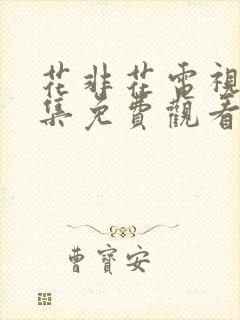 花非花電視
集免費觀看
曹寶安